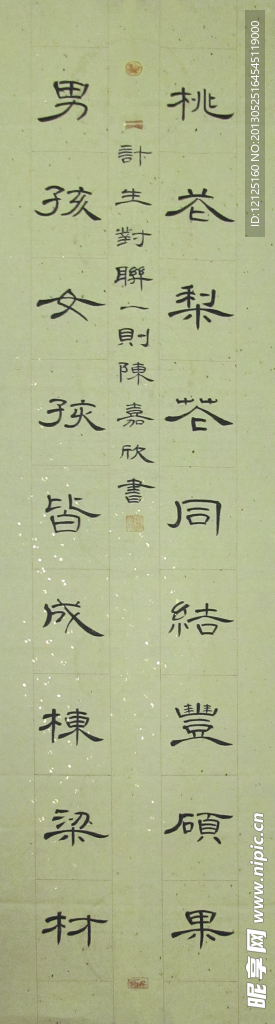 桃花梨花同結豐碩果
計生對聯一則陳嘉欣書
男孩女孩皆成棟梁材
ID:12125160 NO:20130525164545119000
昵享网 www.nipic.cn